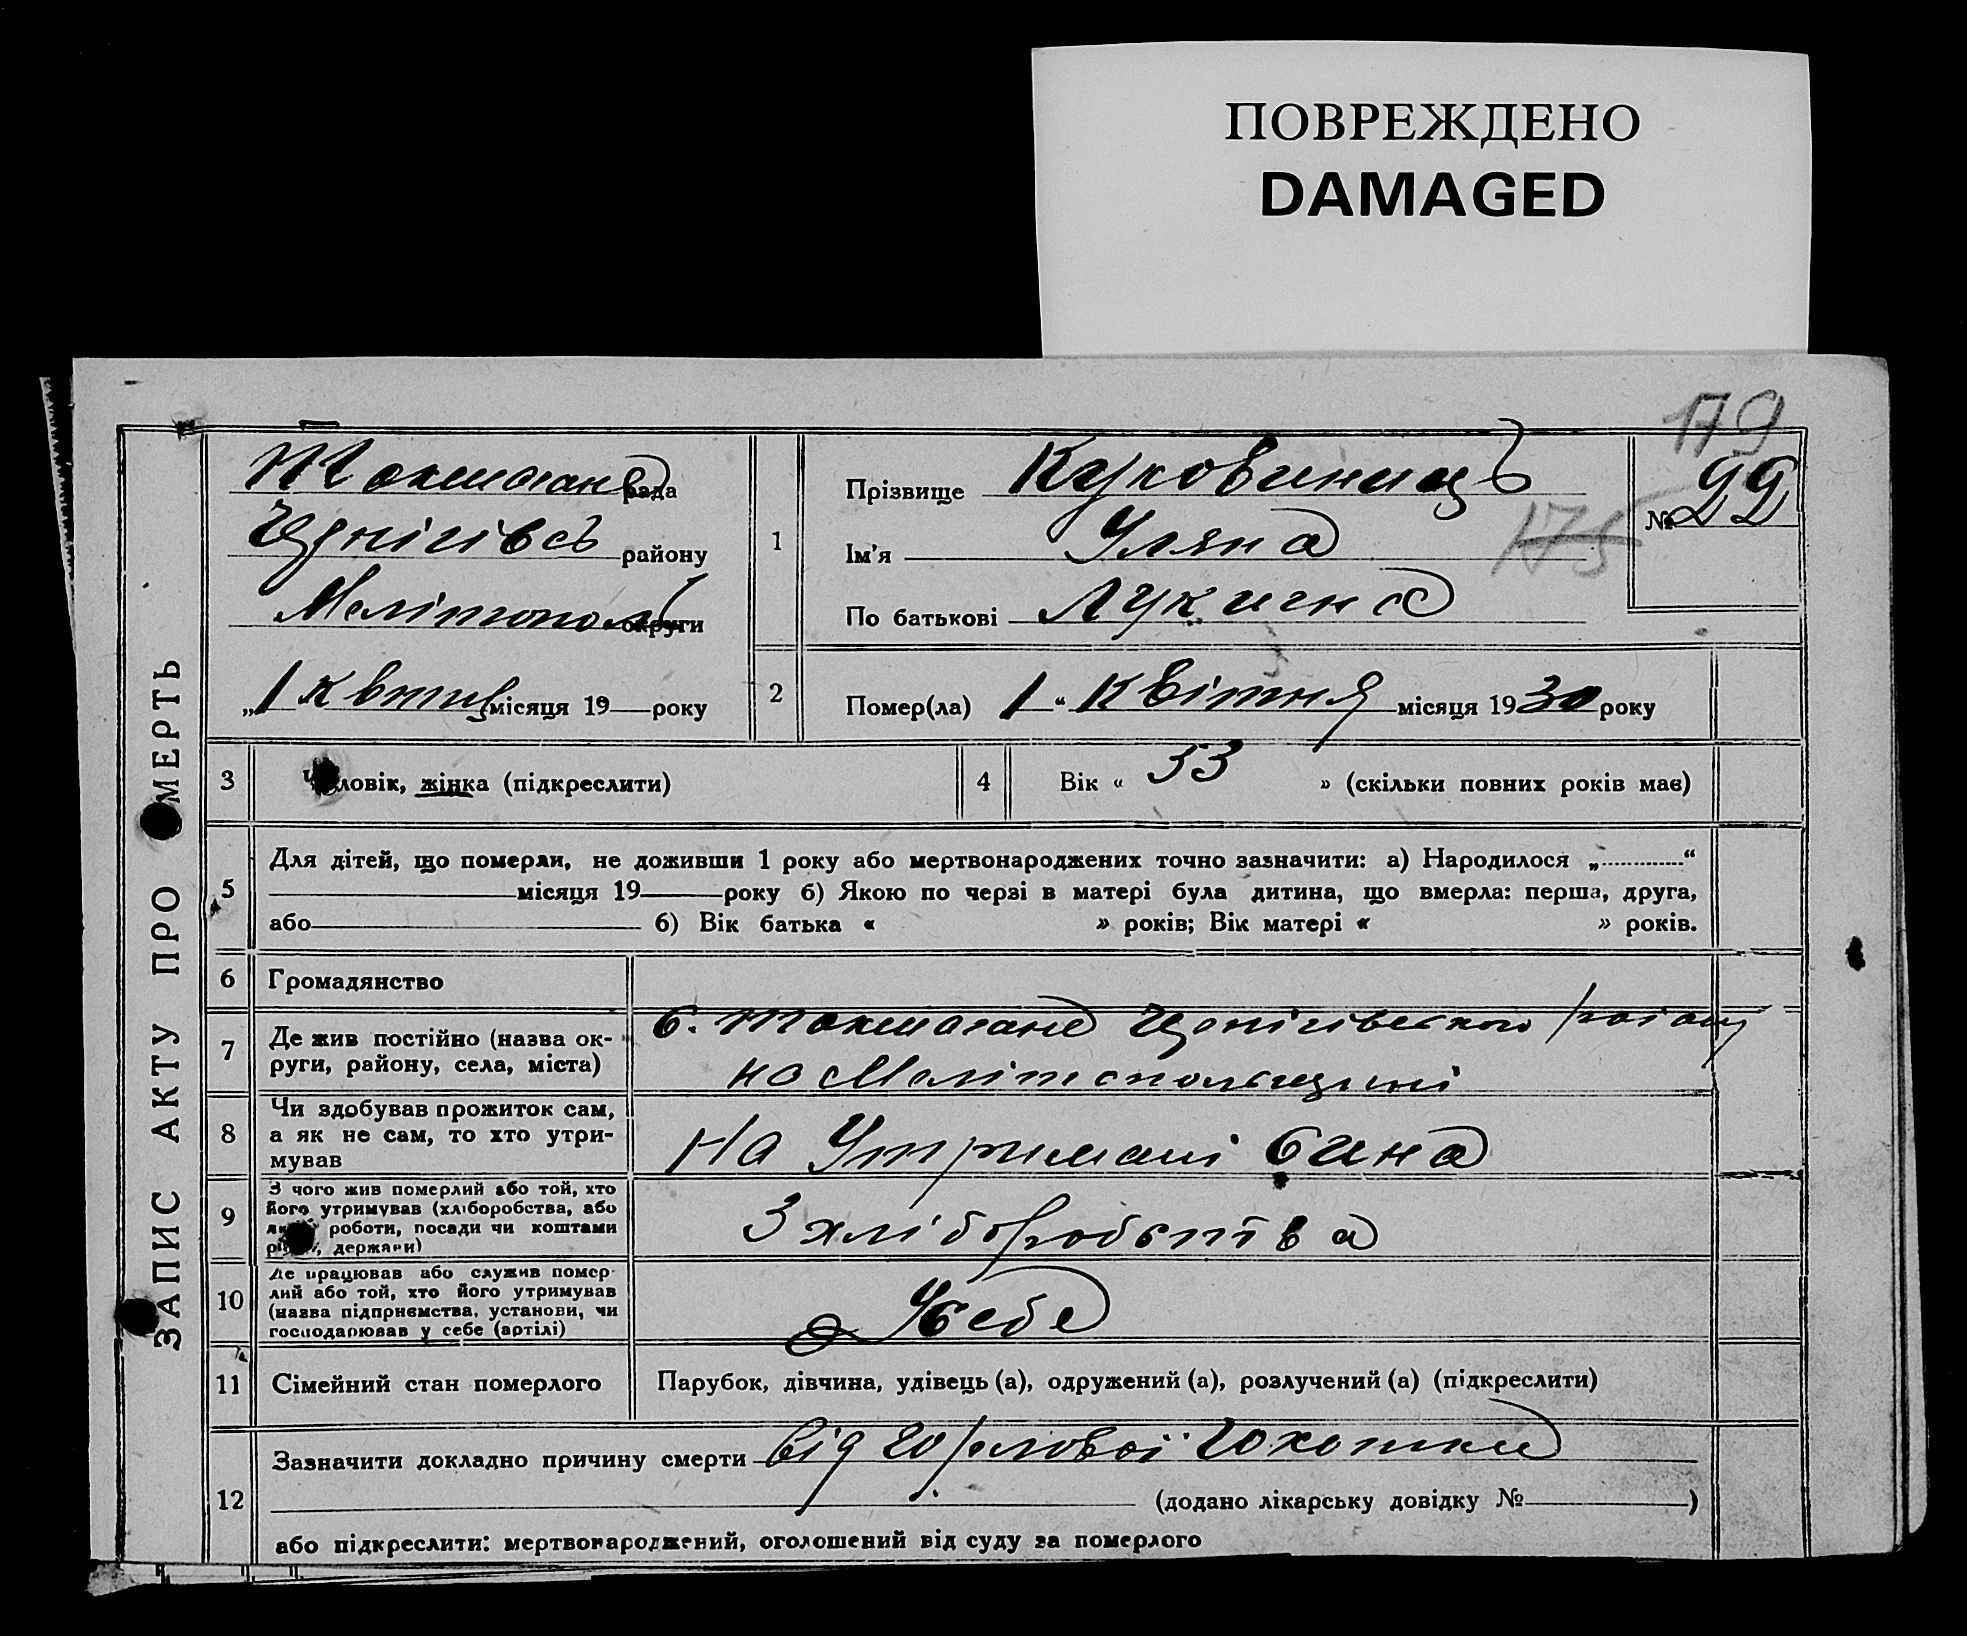 ПОВРЕЖДЕНО
DAMAGED
179
ЗАПИС АКТУ ПРО СМЕРТЬ
рада
району
Мелітополь округи
„1“ місяця 19 року
1
Прізвище
Ім’я Уляна
По батькові
№ 22
175
2
Помер(ла) 1 “ Квітня місяця 1930 року
3
Чоловік, жінка (підкреслити)
4
Вік « 53 » (скільки повних років має)
5
Для дітей, що померли, не доживши 1 року або мертвонароджених точно зазначити: а) Народилося „ “
місяця 19 року б) Якою по черзі в матері була дитина, що вмерла: перша, друга,
або б) Вік батька « » років; Вік матері « » років.
6
Громадянство
7
Де жив постійно (назва ок-
руги, району, села, міста)
с. району
на Мелітопольщині
8
Чи здобував прожиток сам,
а як не сам, то хто утри-
мував
На Утримані Сина
9
З чого жив померлий або той, хто
його утримував (хліборобства, або
роботи, посади чи коштами
держави)
З хліборобства
10
Де працював або служив помер-
лий або той, хто його утримував
(назва підприємства, установи, чи
господарював у себе (артілі)
У себе
11
Сімейний стан померлого
Парубок, дівчина, удівець (а), одружений (а), розлучений (а) (підкреслити)
12
Зазначити докладно причину смерти від горлової
(додано лікарську довідку № )
або підкреслити: мертвонароджений, оголошений від суду за померлого